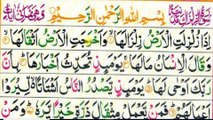 بِسْمِ اللّٰهِ الرَّحْمٰنِ الرَّحِيْمِ
اِذَا زُلْزِلَتِ الْاَرْضُ زِلْزَالَهَا وَاَخْرَجَتِ الْاَرْضُ اَثْقَالَهَا
وَقَالَ الْاِنْسَانُ مَا لَهَا يَوْمَئِذٍ تُحَدِّثُ اَخْبَارَهَا بِاَنَّ
رَبَّكَ اَوْحٰى لَهَا يَوْمَئِذٍ يَّصْدُرُ النَّاسُ اَشْتَاتًا لِّيُرَوْا
اَعْمَالَهُمْ فَمَنْ يَّعْمَلْ مِثْقَالَ ذَرَّةٍ خَيْرًا يَّرَهٗ وَمَنْ